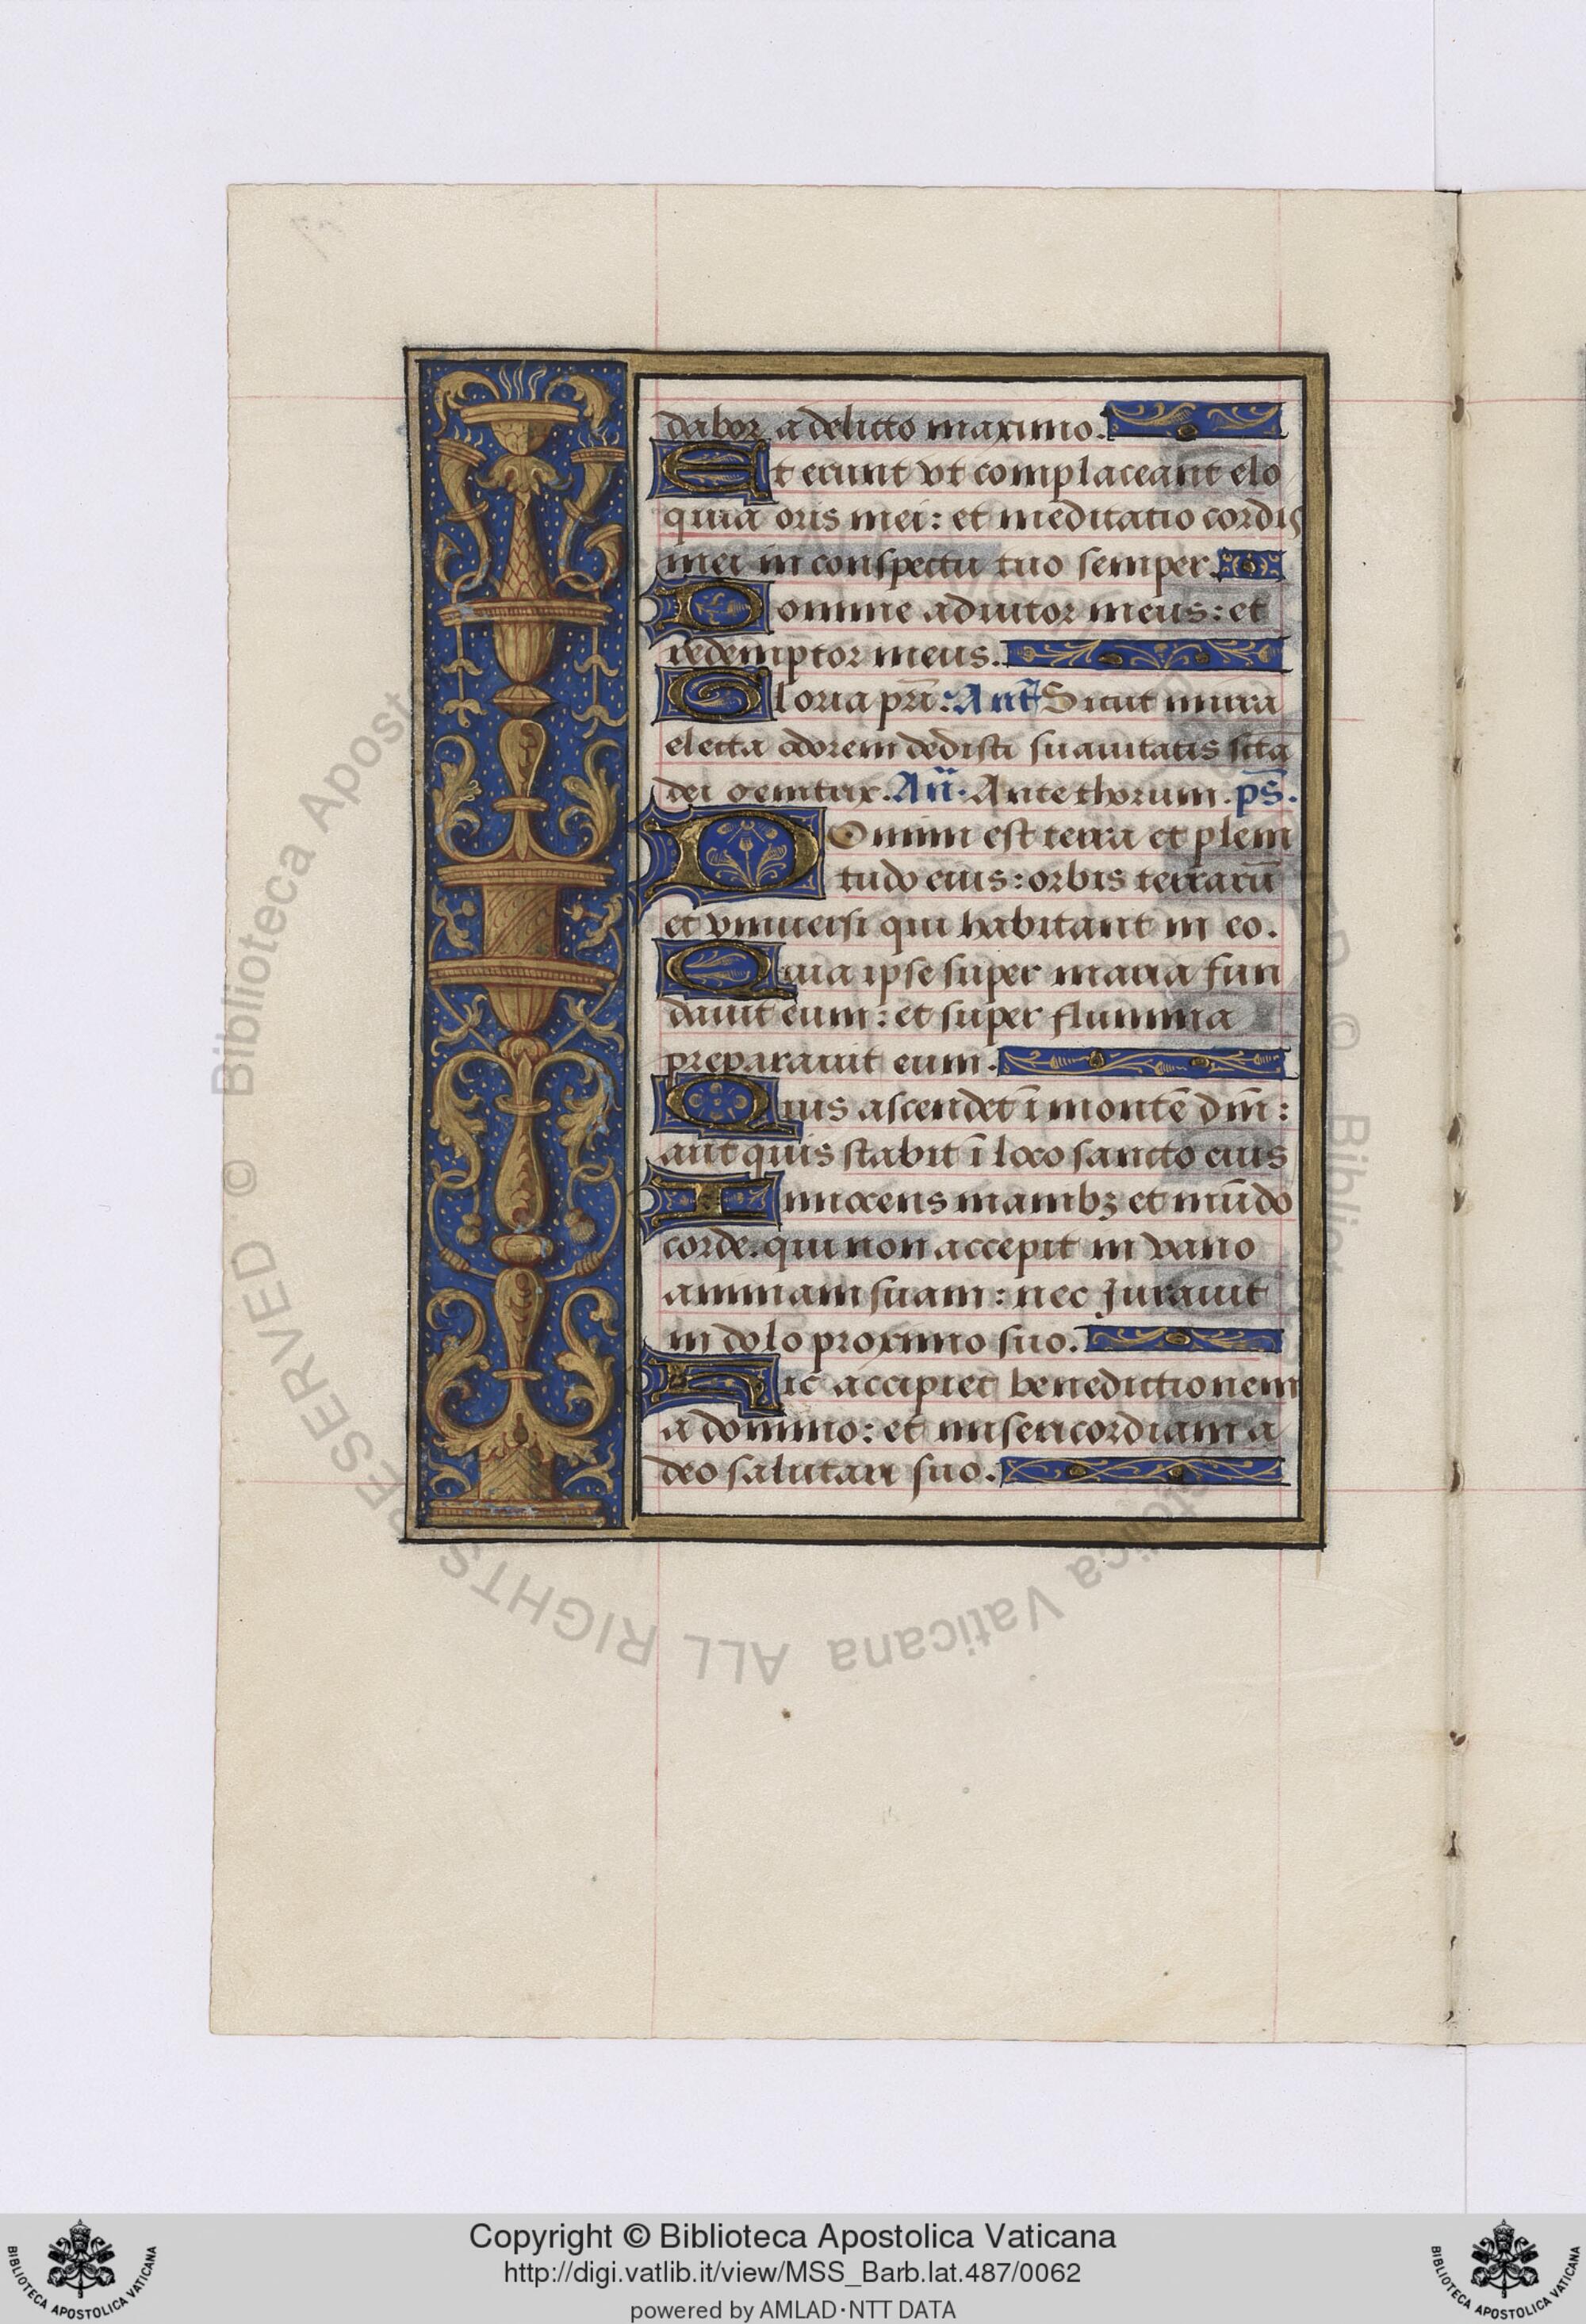 dabor a delicto maximo.
Et erunt vt complaceant elo
quia oris mei: et meditatio cordis
mei in conspectu tuo semper.
Domine adiutor meus: et
redemptor meus.
Gloria pr̄i. Ant̄ Sicut mirra
electa odorem dedisti suauitatis scta
dei genitrix. An̄. Ante thorum. ps̄.
DOmini est terra et pleni
tudo eius: orbis terrarū
et vniuersi qui habitant in eo.
Quia ipse super maria fun
dauit eum: et super flumina
preparauit eum.
Quis ascendet ī montē dn̄i:
aut quis stabit ī loco sancto eius
Innocens manibꝫ et mūdo
corde. qui non accepit in vano
animam suam: nec Jurauit
in dolo proximo suo.
Hic accipiet benedictionem
a domino: et misericordiam a
deo salutari suo.
Biblioteca Apostolica Vaticana ALL RIGHTS RESERVED ©
Copyright © Biblioteca Apostolica Vaticana
http://digi.vatlib.it/view/MSS_Barb.lat.487/0062
powered by AMLAD·NTT DATA
BIBLIOTECA APOSTOLICA VATICANA
BIBLIOTECA APOSTOLICA VATICANA